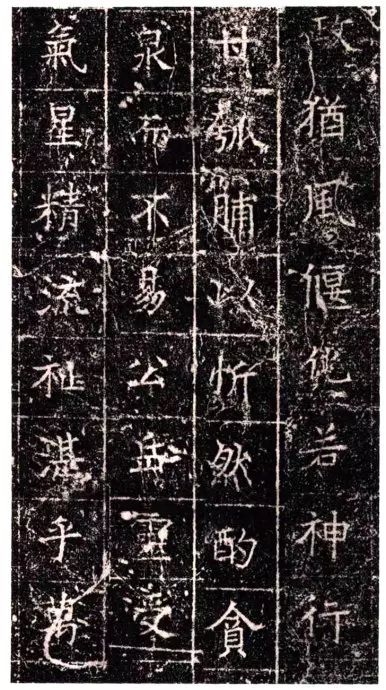 政猶風偃若神行
甘瓠脯以忻然酌貪
泉而不易公受
氣星精流祉湛乎萬